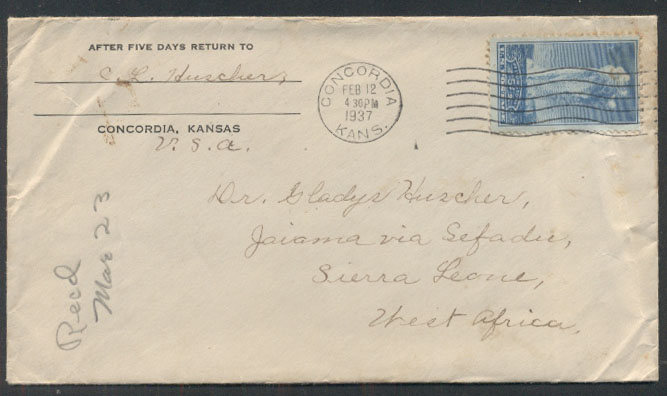 AFTER FIVE DAYS RETURN TO
C. L. Huscher,
CONCORDIA, KANSAS
U.S.A.
CONCORDIA
FEB 12
4 30 PM
1937
KANS.
Dr. Gladys Huscher,
Jaiama via Sefadu,
Sierra Leone,
West Africa.
Recd
Mar 23